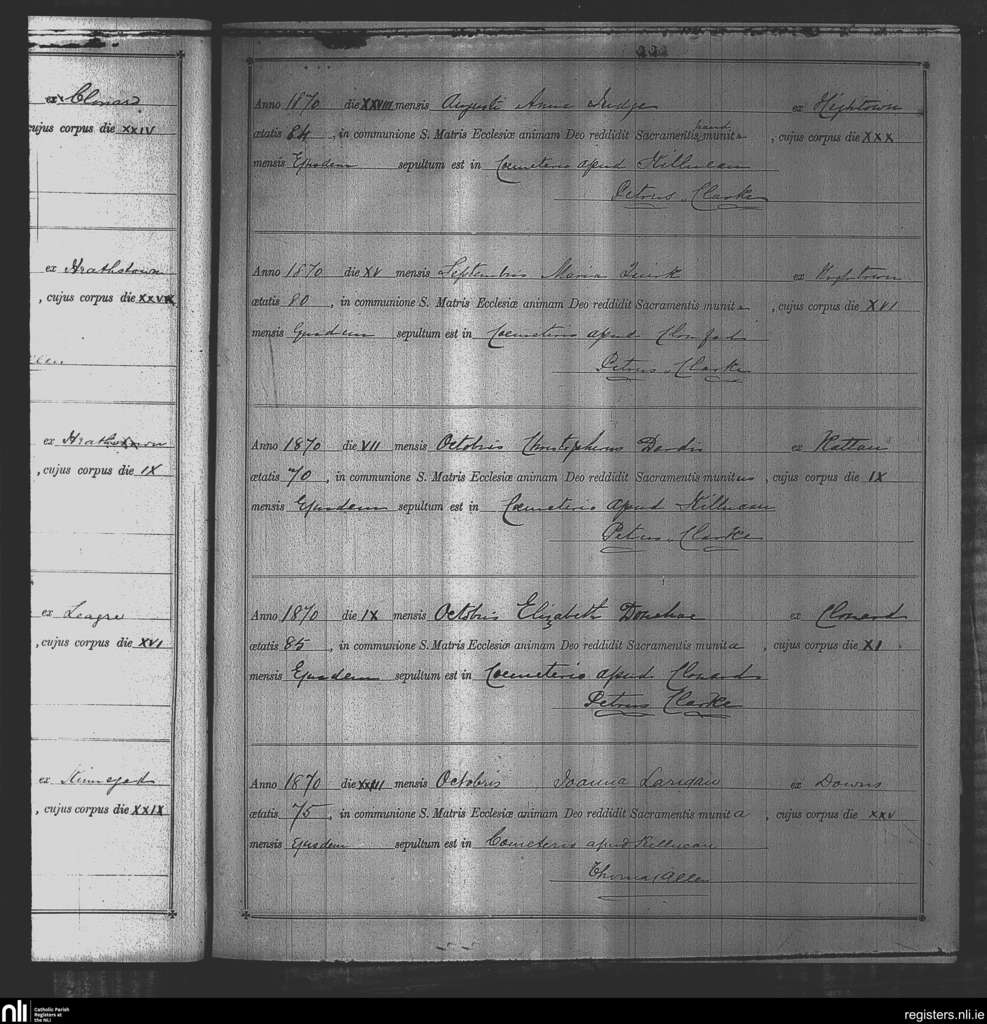 ex Clonard
cujus corpus die XXIV
ex Hrathstown
, cujus corpus die
ex
, cujus corpus die IX
ex Leagre
, cujus corpus die XVI
ex Kinnegad
, cujus corpus die XXIX
222
Anno 1870 die XXVIII mensis Augusti Anna Judge ex Hightown
ætatis 84 , in communione S. Matris Ecclesiæ animam Deo reddidit Sacramentis haud munita , cujus corpus die XXX
mensis Ejusdem sepultum est in Coemeterio apud Killucan
Petrus Clarke
Anno 1870 die XV mensis Septembris Maria Quirk ex Hightown
ætatis 80 , in communione S. Matris Ecclesiæ animam Deo reddidit Sacramentis munita , cujus corpus die XVI
mensis Ejusdem sepultum est in Coemeterio apud
Petrus Clarke
Anno 1870 die VII mensis Octobris Christopherus Dardis ex Rattan
ætatis 70 , in communione S. Matris Ecclesiæ animam Deo reddidit Sacramentis munitus , cujus corpus die IX
mensis Ejusdem sepultum est in Coemeterio apud Killucan
Petrus Clarke
Anno 1870 die IX mensis Octobris Elizabeth Donehue ex Clonard
ætatis 85 , in communione S. Matris Ecclesiæ animam Deo reddidit Sacramentis munita , cujus corpus die XI
mensis Ejusdem sepultum est in Coemeterio apud Clonard
Petrus Clarke
Anno 1870 die XXIII mensis Octobris Joanna Larigan ex Downs
ætatis 75 , in communione S. Matris Ecclesiæ animam Deo reddidit Sacramentis munita , cujus corpus die XXV
mensis Ejusdem sepultum est in Coemeterio apud Killucan
Thomas Allen
nli Catholic Parish Registers at the NLI
registers.nli.ie